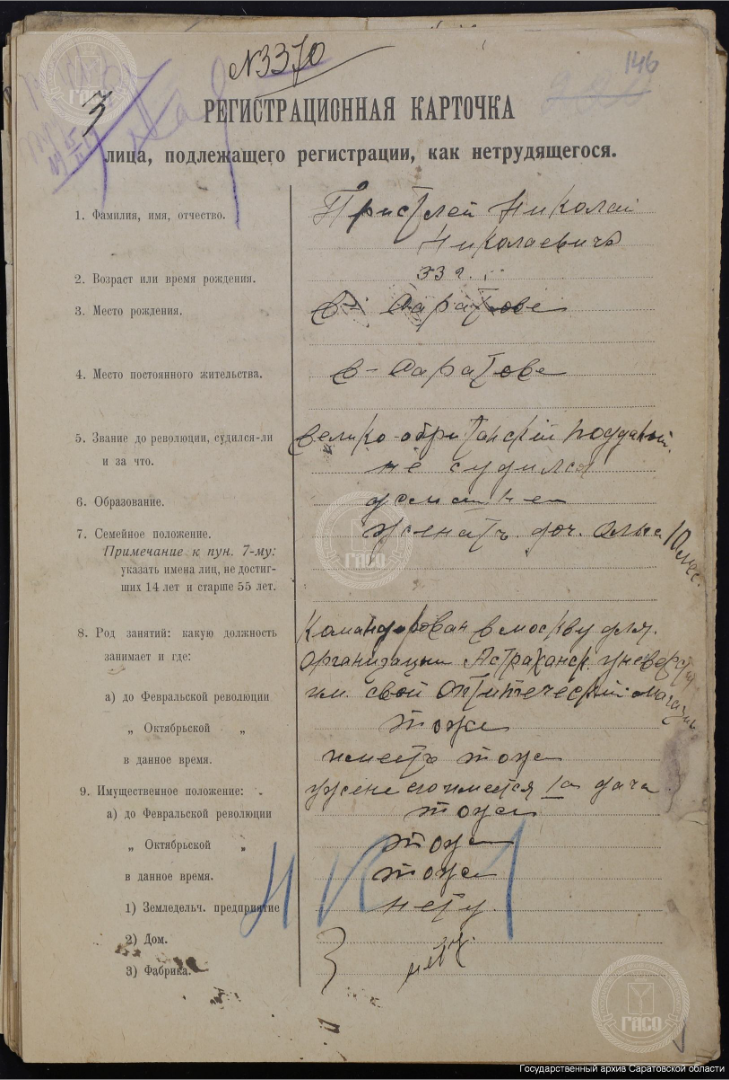 №3370
146
3
РЕГИСТРАЦИОННАЯ КАРТОЧКА
лица, подлежащего регистрации, как нетрудящегося.
1. Фамилия, имя, отчество. Пристлей Николай
Николаевичъ
2. Возраст или время рождения. 33 г.
3. Место рождения. в- Саратове
4. Место постоянного жительства. в- Саратове
5. Звание до революции, судился-ли велико-обританский подданый.
и за что. не судился
6. Образование.
7. Семейное положение. женатъ доч. 10 мес.
Примечание к пун. 7-му:
указать имена лиц, не достиг-
ших 14 лет и старше 55 лет.
8. Род занятий: какую должность Командирован в москву для
занимает и где: организации Астраханск. универс
а) до Февральской революции им. свой оптический магазин
„ Октябрьской „ тоже
в данное время. имеетъ тоже
9. Имущественное положение: у жене его имеется 1а дача
а) до Февральской революции тоже
„ Октябрьской „ тоже
в данное время. тоже
1) Земледельч. предприятие нету.
2) Дом.
3) Фабрика. нет
ГАСО
ГАСО
ГАСО
Государственный архив Саратовской области